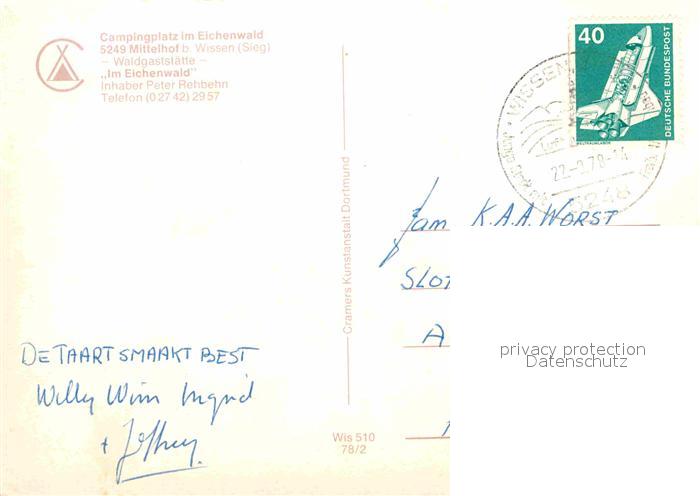 Campingplatz im Eichenwald
5249 Mittelhof b. Wissen (Sieg)
– Waldgaststätte –
„Im Eichenwald"
Inhaber Peter Rehbehn
Telefon (0 27 42) 29 57
40
DEUTSCHE BUNDESPOST
WELTRAUMLABOR
WISSEN
5248
Cramers Kunstanstalt Dortmund
Fam K.A.A. WORST
SLOT
A
DE TAART SMAAKT BEST
Willy Wim Ingrid
+ Jeffrey
Wis 510
78/2
privacy protection
Datenschutz